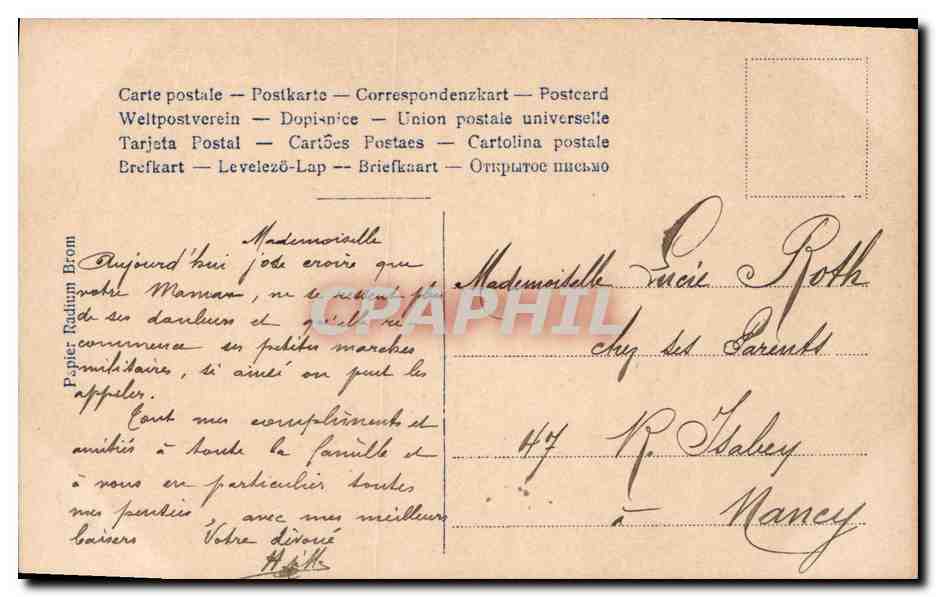 Carte postale — Postkarte — Correspondenzkart — Postcard
Weltpostverein — Dopisnice — Union postale universelle
Tarjeta Postal — Cartões Postaes — Cartolina postale
Brefkart — Levelezö-Lap -- Briefkaart — Открытое письмо
Papier Radium Brom
Mademoiselle
Aujourd'hui j'ose croire que
votre Maman, ne se ressent plus
de ses douleurs et qu'elle re
commence ses petites marches
militaires, si ainsi on peut les
appeler.
Tout mes compliments et
amitiés à toute la famille et
à vous en particulier toutes
mes pensées, avec mes meilleurs
baisers Votre dévoué
Mademoiselle Lucie Roth
chez ses Parents
47 R. Isabey
à Nancy
CPAPHIL